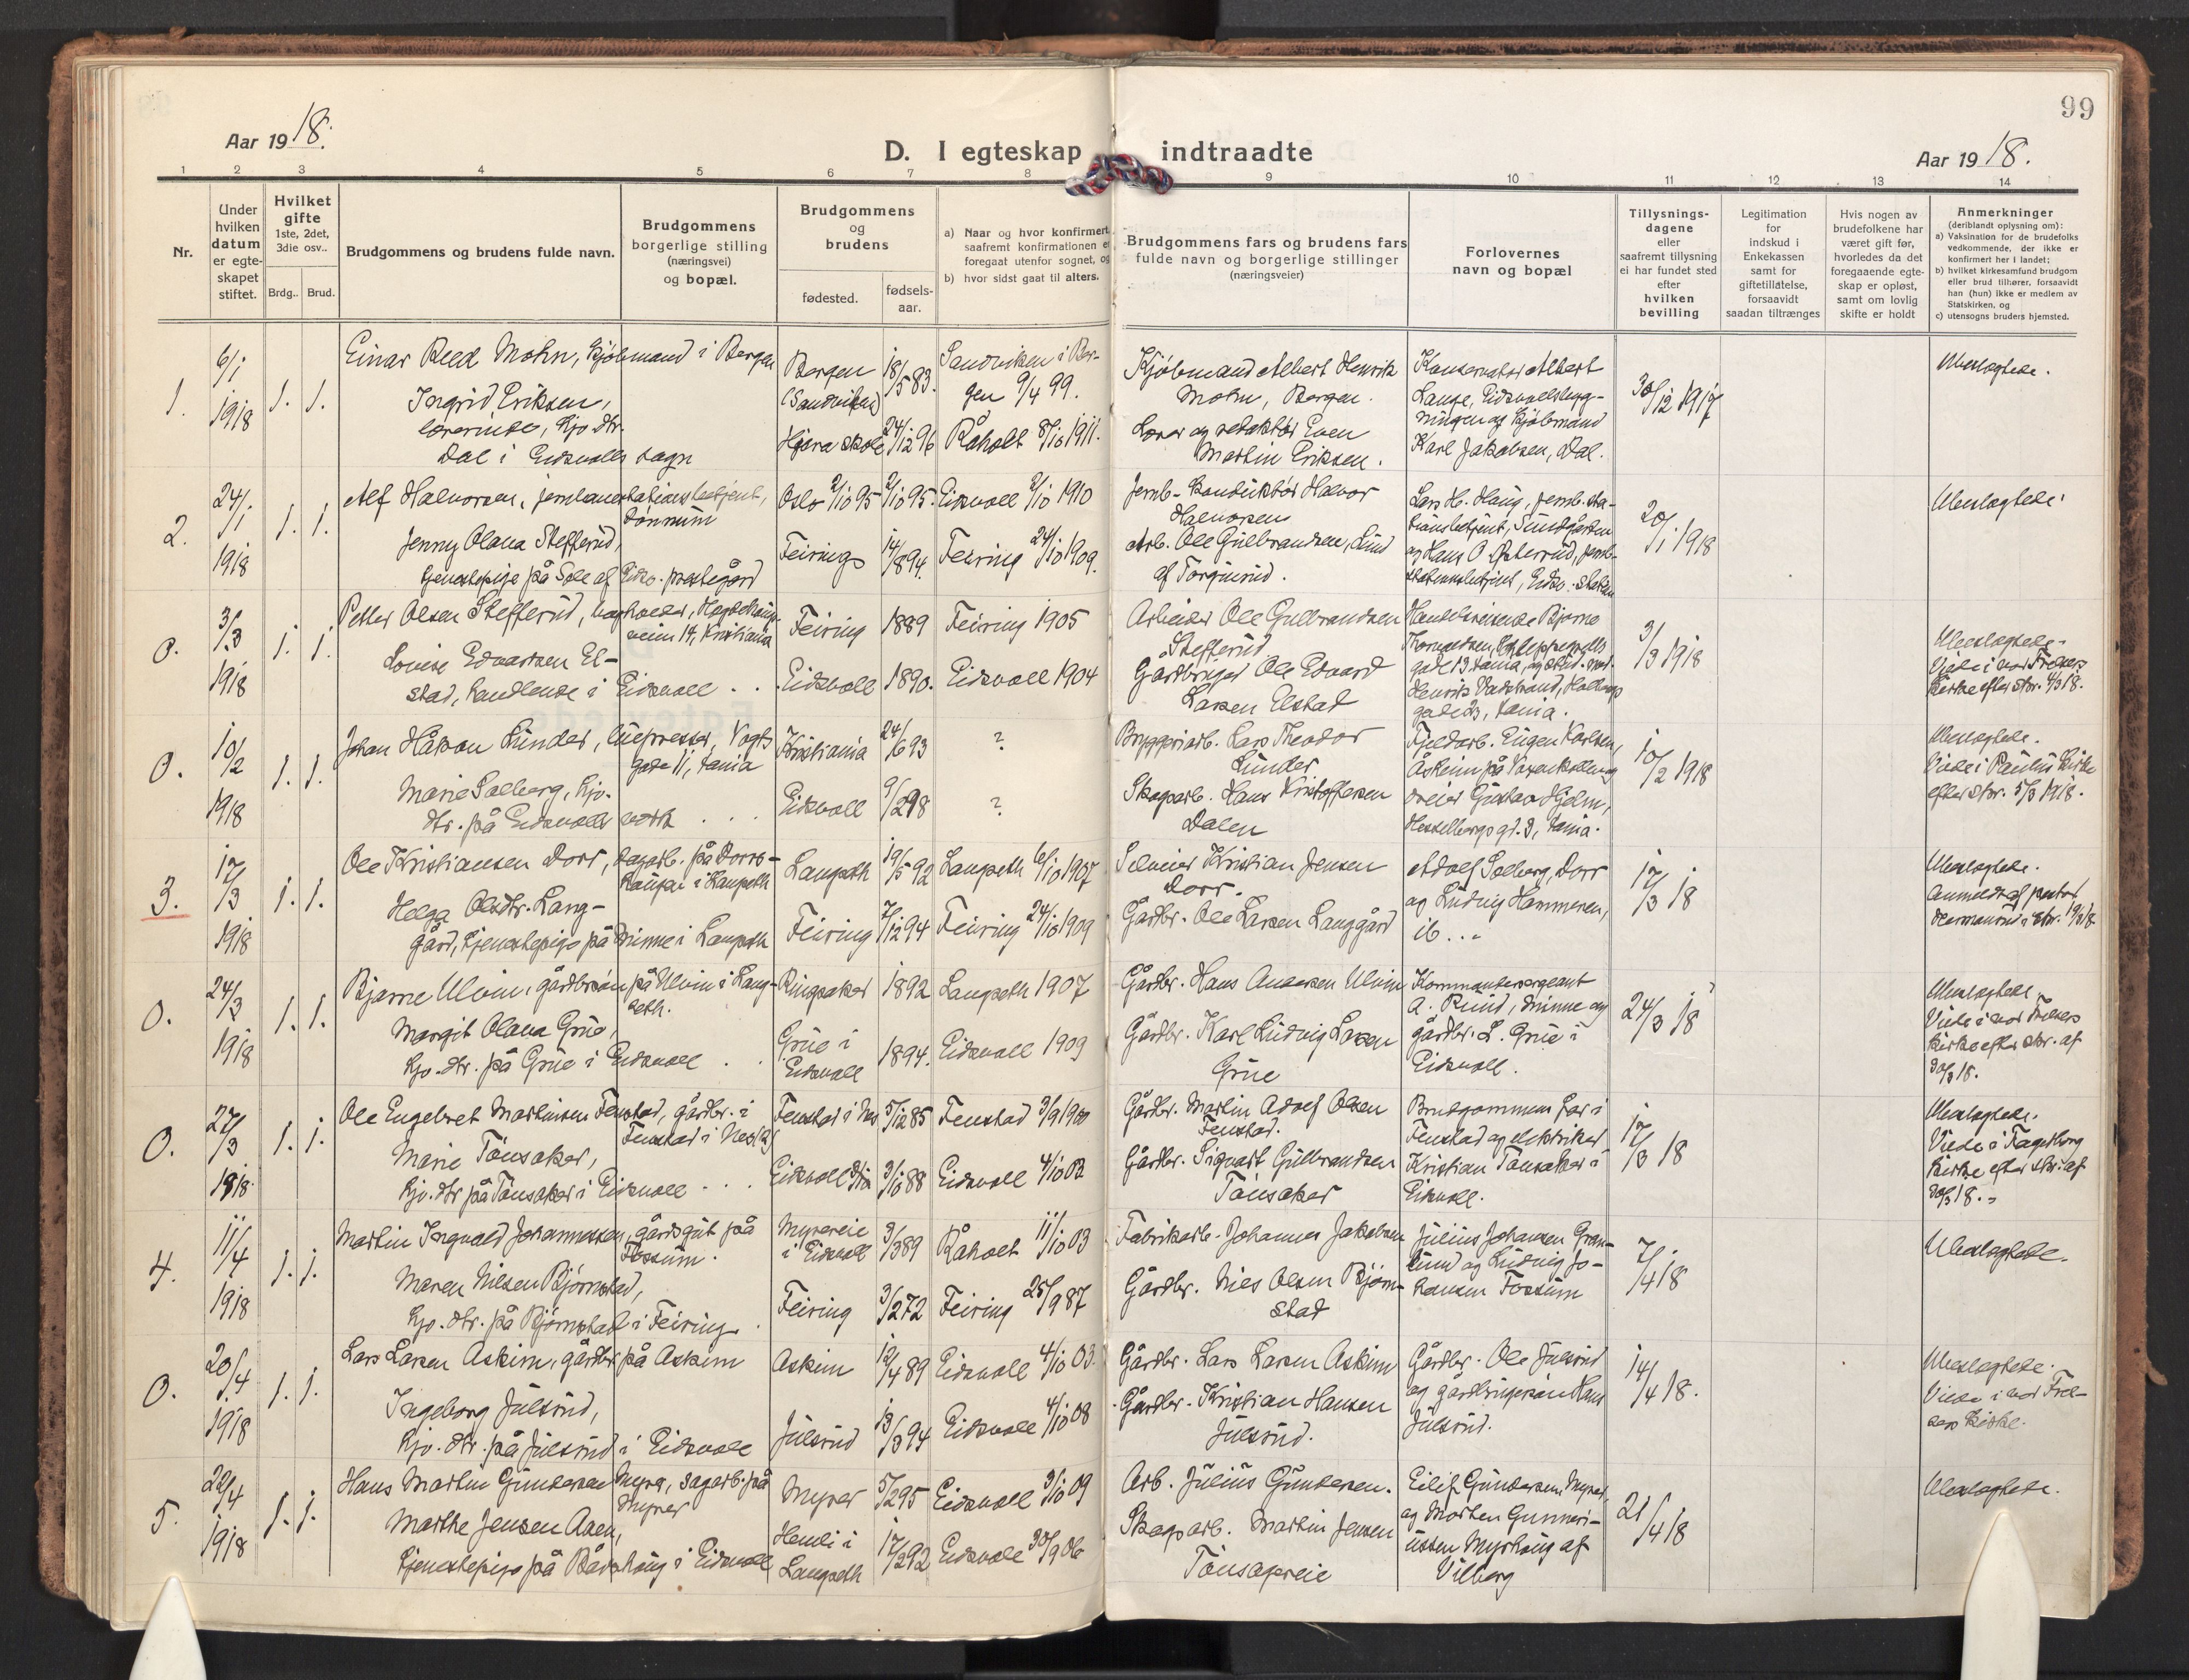 99
Aar 1918.
D. I egteskap indtraadte
Aar 1918.
1 2 3 4 5 6 7 8 9 10 11 12 13 14
Nr.
Under hvilken datum er egte-skapet stiftet.
Hvilket gifte 1ste, 2det, 3die osv..
Brdg.. Brud.
Brudgommens og brudens fulde navn.
Brudgommens borgerlige stilling (næringsvei) og bopæl.
Brudgommens og brudens
fødested.
fødsels-aar.
a) Naar og hvor konfirmert, saafremt konfirmationen er foregaat utenfor sognet, og
b) hvor sidst gaat til alters.
Brudgommens fars og brudens fars fulde navn og borgerlige stillinger (næringsveier)
Forlovernes navn og bopæl
Tillysnings-dagene eller saafremt tillysning ei har fundet sted efter hvilken bevilling
Legitimation for indskud i Enkekassen samt for giftetillåtelse, forsaavidt saadan tiltrænges
Hvis nogen av brudefolkene har været gift før, hvorledes da det foregaaende egte-skap er opløst, samt om lovlig skifte er holdt
Anmerkninger (deriblandt oplysning om):
a) Vaksination for de brudefolks vedkommende, der ikke er konfirmert her i landet;
b) hvilket kirkesamfund brudgom eller brud tilhører, forsaavidt han (hun) ikke er medlem av Statskirken, og
c) utensogns bruders hjemsted.
1. 6/1 1918 1. 1.
Einar Reed Mohn, kjøbmand i Bergen
Bergen (Sandviken) 18/5 83. Sandviken i Ber-gen 9/4 99.
Ingrid Eriksen,
lærerinde, hjv. dtr.
Dal i Eidsvolls sogn
24/12 96 Råholt 8/10 1911.
Kjøbmand Albert Henrik
Mohn, Bergen.
Lærer og redaktør Even
Martin Eriksen.
Konservator Albert
Lange, Eidsvollsbyg-
ningen og kjøbmand
Karl Jakobsen, Dal.
30/12 1917
Ubeslegtede.
2. 24/1 1918 1. 1.
Alf Halvorsen, jernbanestationsbetjent,
Dønnum
Oslo 2/10 95 2/10 95. Eidsvoll 2/10 1910
Jenny Olava Stefferud,
tjenestepige på Sole af Eidsv. prestegård
Feiring 14/8 94. Feiring 24/10 1909.
Jernb-konduktør Halvor
Halvorsen
Arb. Ole Gulbrandsen, Lund
af Torgunrud.
Lars H. Haug, jernb. sta-
tionsbetjent, Sundgården
og Hans O. Østerud, jernb-
stationsbetjent, Eidsv. station
20/1 1918
Ubeslegtede.
0. 3/3 1918 1. 1.
Petter Olsen Stefferud,
veien 14, Kristiania
Feiring 1889 Feiring 1905
Lovise Edvardsen El-
stad, handlende i Eidsvoll . .
Eidsvoll 1890. Eidsvoll 1904
Arbeider Ole Gulbrandsen
Stefferud
Gårdbruger Ole Edvard
Larsen Elstad
Handelsreisende Bjarne
gade 13, Kania, og stud. med.
Henrik
gade 23, Kania.
3/3 1918
Ubeslegtede.
Viede i vor Frelsers
kirke efter skr. 4/3 18.
0. 10/2 1918 1. 1.
Johan Håkon Lunder, Vogts
gade 11, Kania
Kristiania 24/6 93 ?
Marie Solberg, hjv.
dtr. på Eidsvolls verk . . .
Eidsvoll 9/2 98 ?
Bryggeriarb. Lars Theodor
Lunder
Skogsarb. Hans Kristoffersen
Dalen
Fjeldarb. Eugen Karlsen,
Åsheim på Voxenkollen og
dreier Gustav Hjelm,
Hesselbergs gt. 3, Kania.
10/2 1918
Ubeslegtede.
Viede i Paulus kirke
efter skr. 5/3 1918.
3. 17/3 1918 1. 1.
Ole Kristiansen Dorr, sagarb. på Dorrs-
kampen i Langseth
Langseth 19/5 92 Langseth 6/10 1907
Helga Olsdtr. Lang-
gård, tjenestepige på Minne i Langseth
Feiring 7/12 94 Feiring 24/10 1909
Selveier Kristian Jensen
Dorr.
Gårdbr. Ole Larsen Langgård
Adolf Solberg, Dorr
og Ludvig Hammeren,
ib...
17/3 18
Ubeslegtede.
Anmeldt af pastor
Hermanrud i skr. 19/3 18.
0. 24/3 1918 1. 1.
Bjarne Ulvin, gårdbrsøn på Ulvin i Lang-
seth.
Ringsaker 1892 Langseth 1907
Margit Olava Grue,
hjv. dtr. på Grue i Eidsvoll . .
Grue i Eidsvoll 1894. Eidsvoll 1909
Gårdbr. Hans Andersen Ulvin
Gårdbr. Karl Ludvig Larsen
Grue
Kommandersergeant
A. Ruud, Minne og
gårdbr. L. Grue i
Eidsvoll.
24/3 18
Ubeslegtede
Viede i vor Frelsers
kirke efter skr. af
30/3 18.
0. 27/3 1918 1. 1.
Ole Engebret Martinsen Fenstad, gårdbr. i
Fenstad i Nes
Fenstad i Nes 5/12 85 Fenstad 3/9 1900
Marie Tønsaker,
hjv. dtr på Tønsaker i Eidsvoll . . .
Eidsvoll 3/10 88 Eidsvoll 4/10 03
Gårdbr. Martin Adolf Olsen
Fenstad.
Gårdbr. Sigvart Gulbrandsen
Tønsaker
Brudgommens far i
Fenstad og elektriker
Kristian Tønsaker i
Eidsvoll.
17/3 18
Ubeslegtede.
Viede i Fagerborg
kirke efter skr. af
30/3 18.
4. 11/4 1918 1. 1.
Martin Ingvald Johannessen, gårdsgut på
Fossum.
Myrereie i Eidsvoll 3/3 89 Råholt 11/10 03
Maren Nilsen Bjørnstad,
hjv. dtr. på Bjørnstad i Feiring .
Feiring 3/2 72 Feiring 25/9 87
Fabrikarb. Johannes Jakobsen
Gårdbr. Nils Olsen Bjørn-
stad
Julius Johansen Gran-
lund og Ludvig Jo-
hansen Fossum
7/4 18
Ubeslegtede.
0. 20/4 1918 1. 1.
Lars Larsen Askim, gårdbr på Askim
Askim 12/4 89 Eidsvoll 4/10 03.
Ingeborg Julsrud,
hjv. dtr. på Julsrud i Eidsvoll
Julsrud 13/3 94 Eidsvoll 4/10 08
Gårdbr. Lars Larsen Askim
Gårdbr. Kristian Hansen
Julsrud.
Gårdbr. Ole Julsrud
og gårdbrugersøn Hans
Julsrud.
14/4 18.
Ubeslegtede.
Viede i vor Frel-
sers kirke.
5. 22/4 1918 1. 1.
Hans Martin Gundersen Myrer, sagarb. på
Myrer
Myrer 5/2 95 Eidsvoll 3/10 09
Marthe Jensen Aasen,
tjenestepige på Bådshaug i Eidsvoll
Hemli i Langseth 17/2 92 Eidsvoll 30/9 06
Arb. Julius Gundersen.
Skogsarb. Martin Jensen
Tønsagereie
Eilif Gundersen Myrer,
og Morten Gunneri-
ussen Myrhaug af
Vilberg
21/4 18
Ubeslegtede.